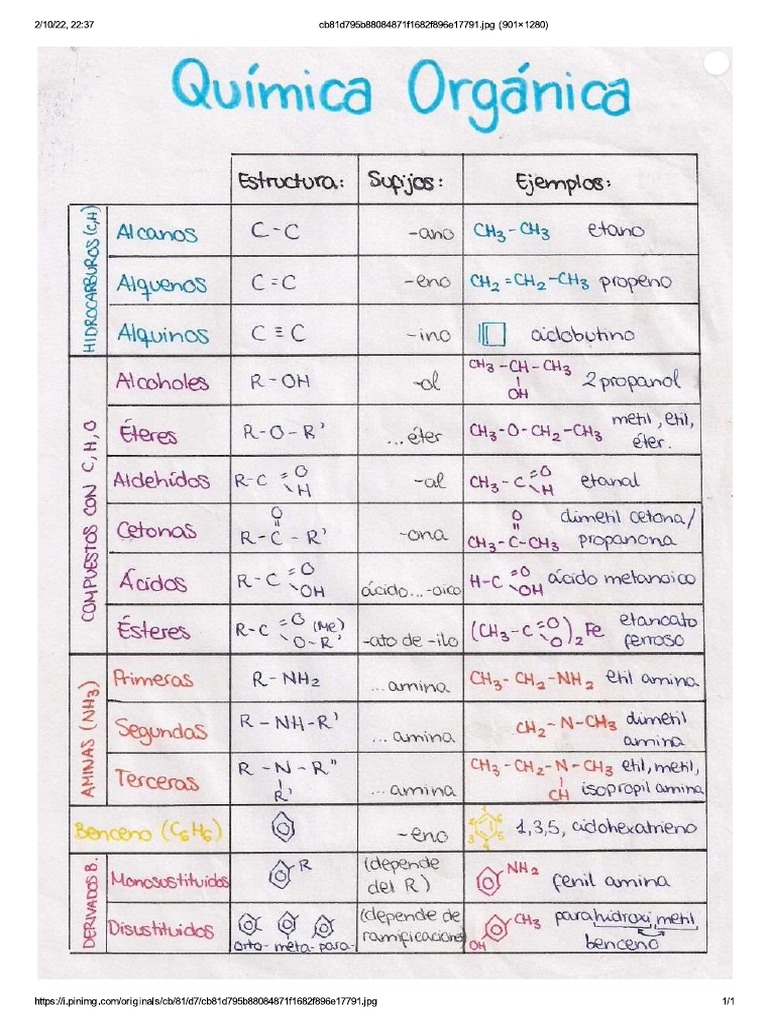 2/10/22, 22:37 cb81d795b88084871f1682f896e17791.jpg (901×1280)
Química Orgánica
Estructura: Sufijos: Ejemplos:
HIDROCARBUROS (C,H)
Alcanos C-C -ano CH3-CH3 etano
Alquenos C=C -eno CH2=CH2-CH3 propeno
Alquinos C≡C -ino ciclobutino
COMPUESTOS CON C, H, O
Alcoholes R-OH -ol CH3-CH-CH3 2 propanol
OH
Éteres R-O-R' ...éter CH3-O-CH2-CH3 metil, etil,
éter.
Aldehídos R-C=O -al CH3-C=O etanal
H H
Cetonas R-C-R' -ona CH3-C-CH3 dimetil cetona/
O O propanona
Ácidos R-C=O ácido...-oico H-C=O ácido metanoico
OH OH
Ésteres R-C=O (Me) -ato de -ilo (CH3-C=O)2Fe etanoato
O-R' O ferroso
AMINAS (NH3)
Primeras R-NH2 ...amina CH3-CH2-NH2 etil amina
Segundas R-NH-R' ...amina CH2-N-CH3 dimetil
amina
Terceras R-N-R" ...amina CH3-CH2-N-CH3 etil, metil,
R' CH isopropil amina
Benceno (C6H6) -eno 1,3,5, ciclohexatrieno
DERIVADOS B.
Monosustituidos R (depende NH2 fenil amina
del R)
Disustituidos orto- meta- para- (depende de CH3 parahidroxi metil
ramificaciones) OH benceno
https://i.pinimg.com/originals/cb/81/d7/cb81d795b88084871f1682f896e17791.jpg 1/1